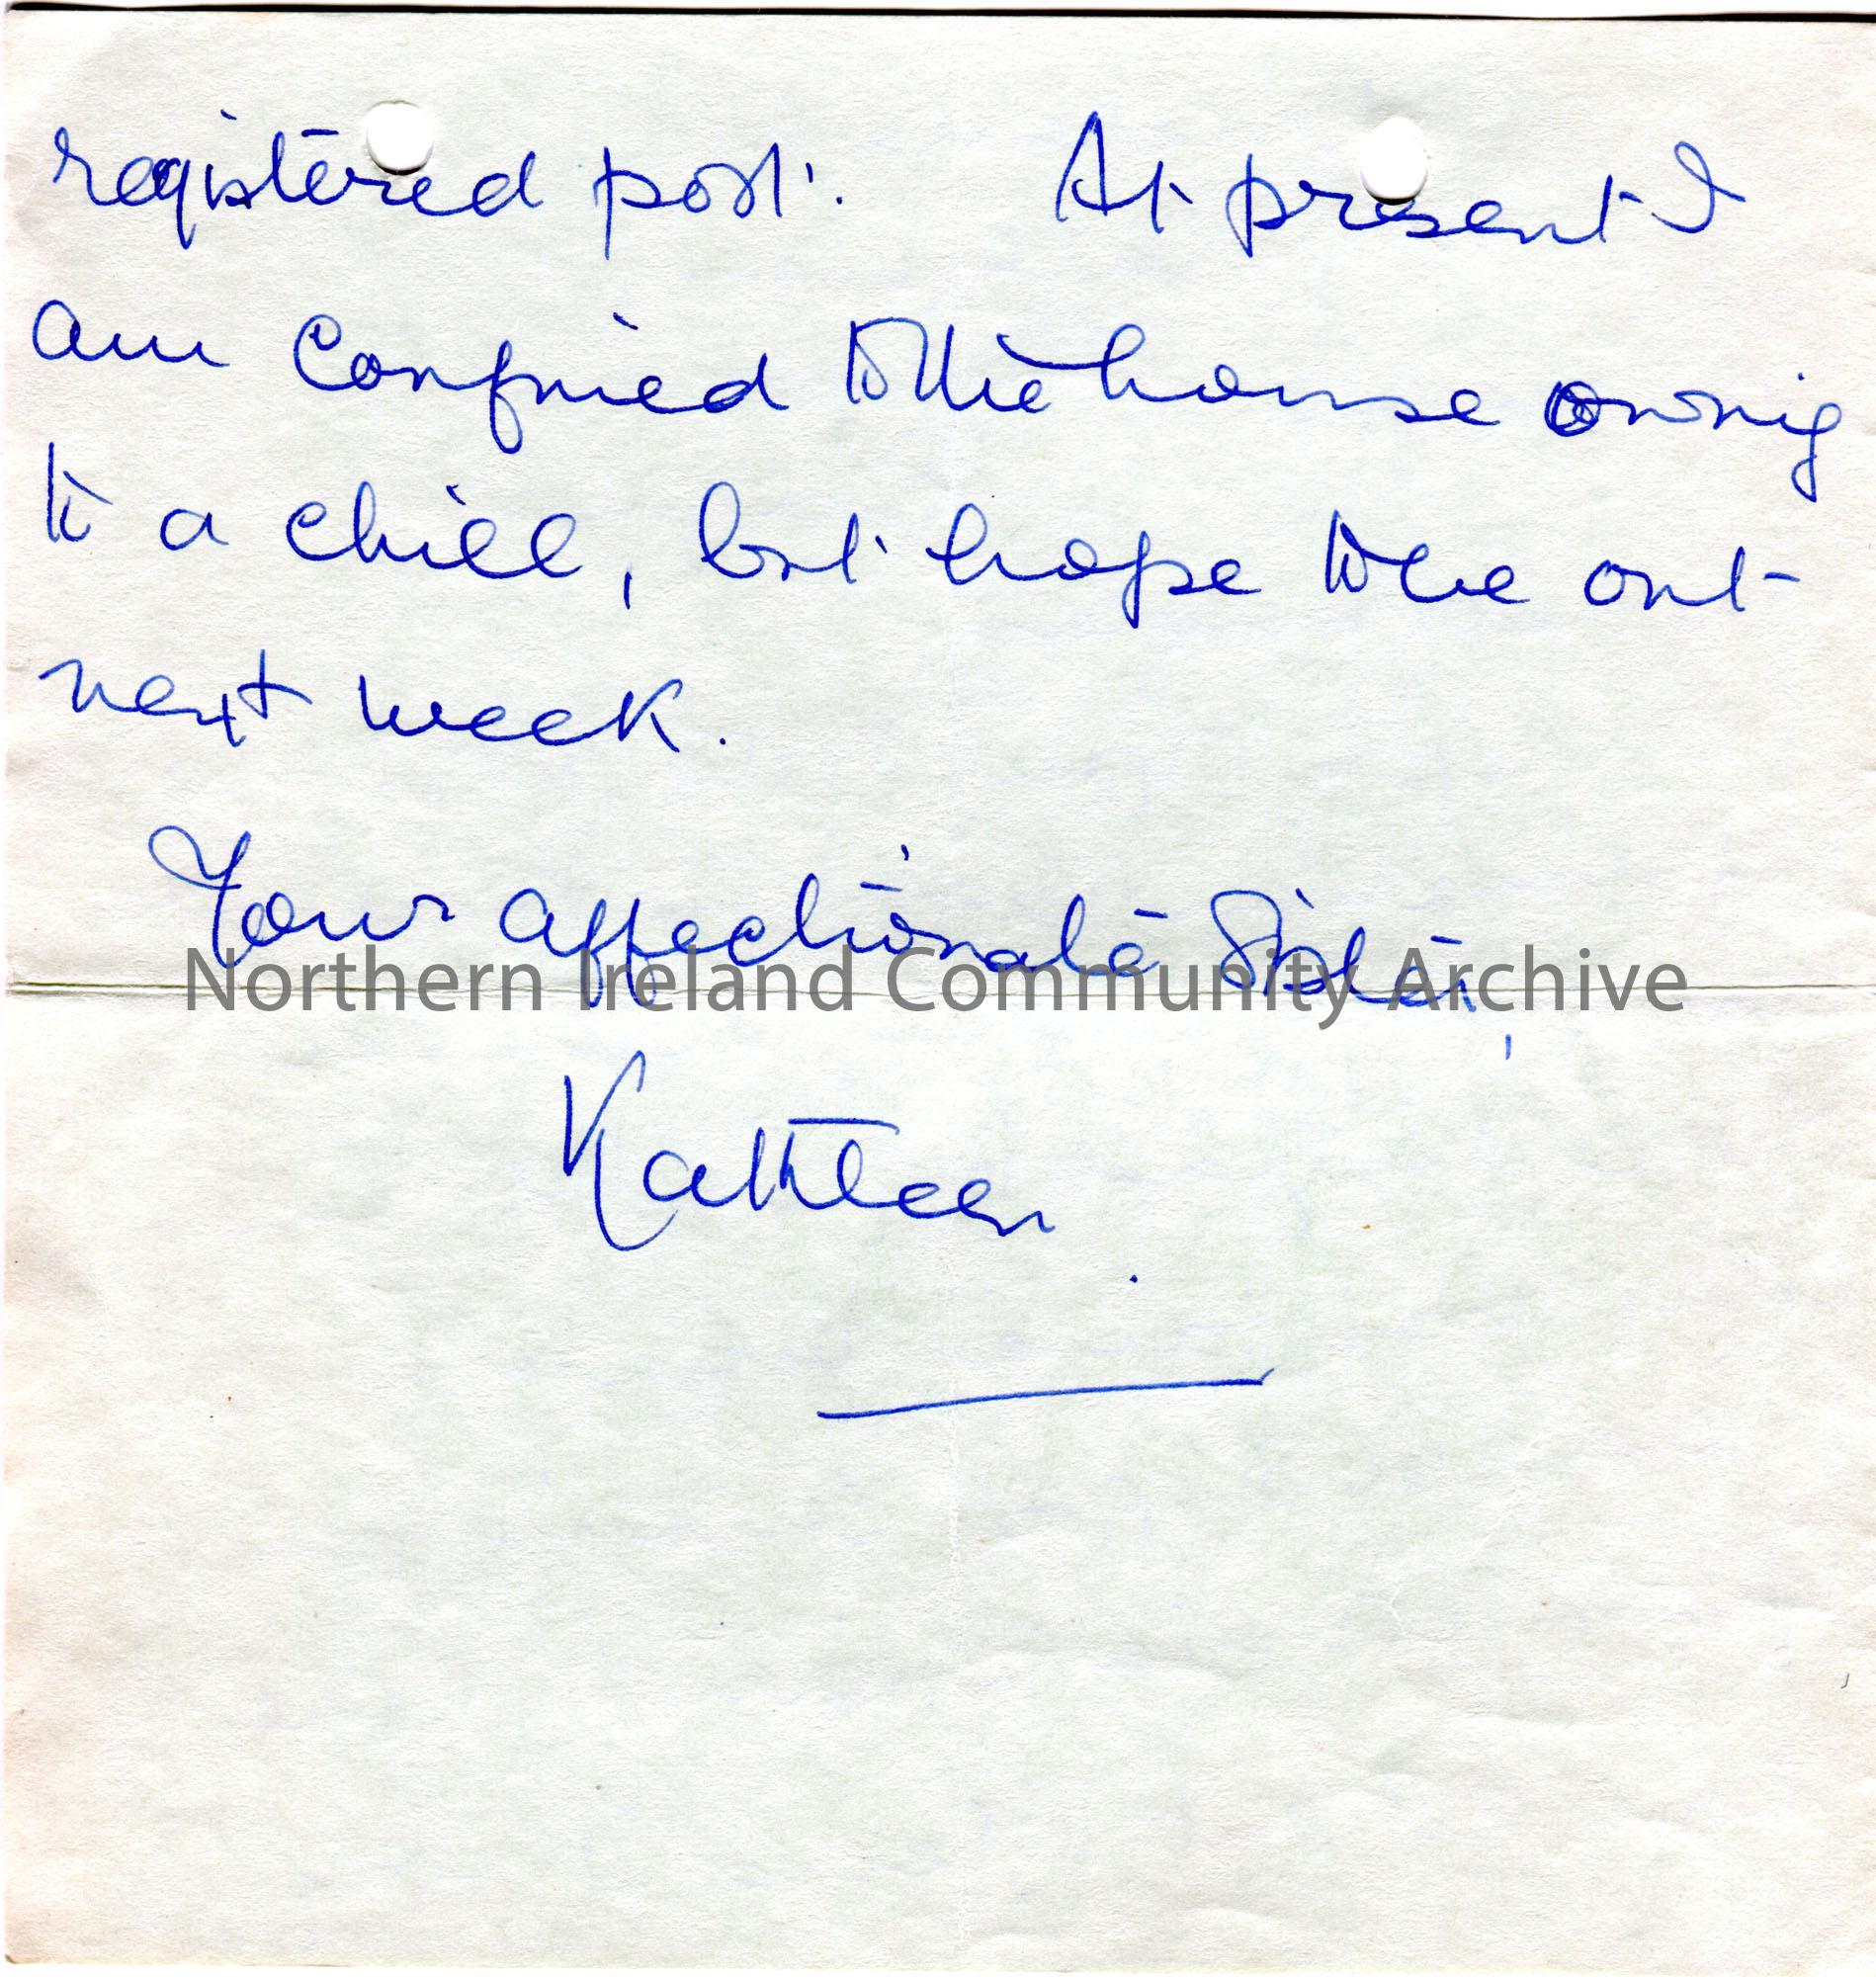 registered post. At present I
am confined to the house owing
to a chill, but hope to be out
next week.
Your affectionate Sister,
Northern Ireland Community Archive
Kathleen.